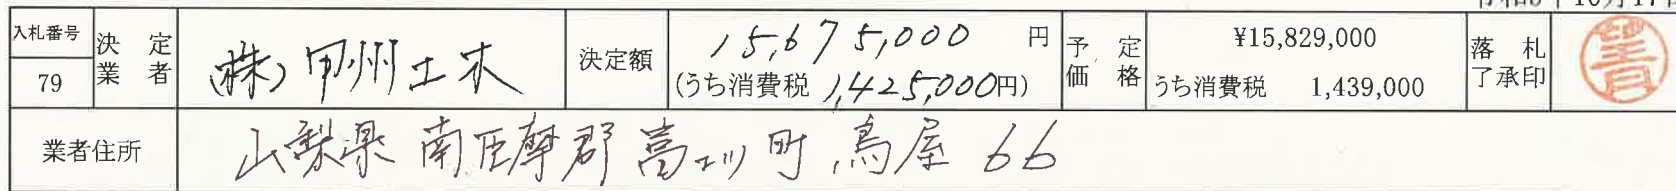 入札番号
79
決定業者
(株)甲州土木
決定額
15,675,000 円
(うち消費税 1,425,000円)
予定価格
¥15,829,000
うち消費税 1,439,000
落札了承印
業者住所
山梨県 南巨摩郡 富士川町 鳥屋 66